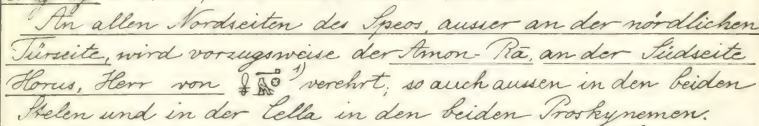 An allen Nordseiten des Speos, ausser an der nördlichen
Türseite, wird vorzugsweise der Amon-Rā, an der Südseite
Horus, Herr von ¹⁾ verehrt; so auch aussen in den beiden
Stelen und in der Cella in den beiden Proskynemen.